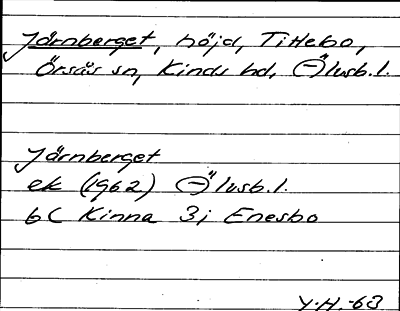 Järnberget, höjd, Tittebo,
Örsås sn, Kinds hd, Älvsb. l.
Järnberget
ek (1962) Älvsb. l.
6C Kinna 3j Enesbo
Y.H.-63